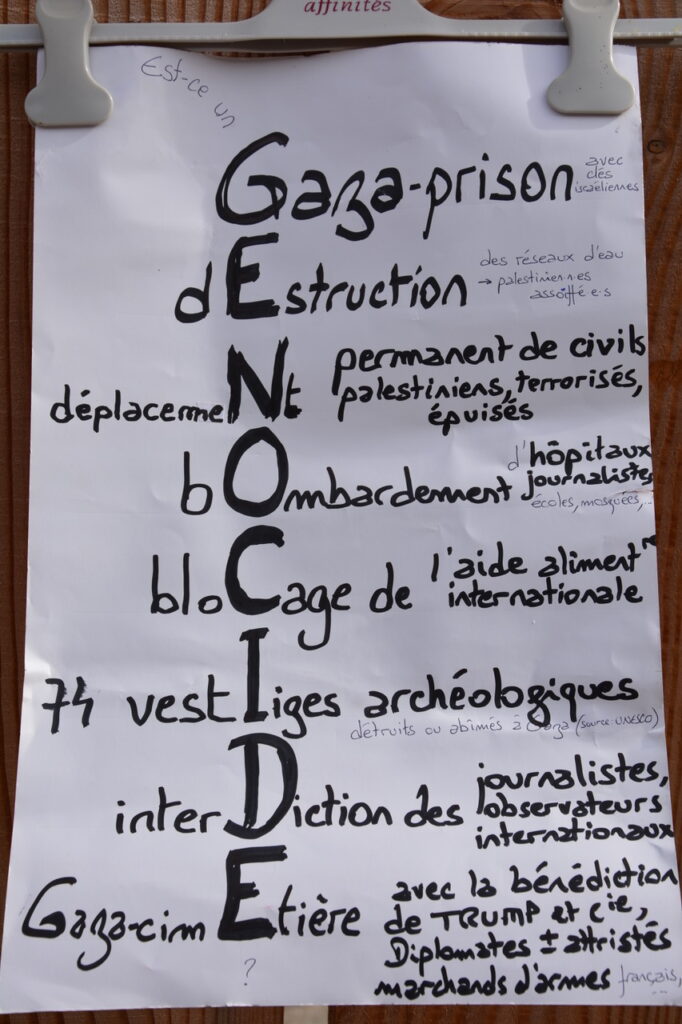 affinités
Est-ce un
Gaza-prison avec clés israéliennes
dEstruction des réseaux d'eau
→ palestinien·n·es
assoiffé·e·s
déplacemeNt permanent de civils
palestiniens, terrorisés,
épuisés
bOmbardement d'hôpitaux
journalistes
écoles, mosquées,...
bloCage de l'aide aliment re
internationale
74 vestIiges archéologiques
détruits ou abîmés à Gaza (source: UNESCO)
interDiction des journalistes,
observateurs
internationaux
Gaza-cimEtière avec la bénédiction
de TRUMP et Cie,
Diplomates ± attristés
marchands d'armes français,
?